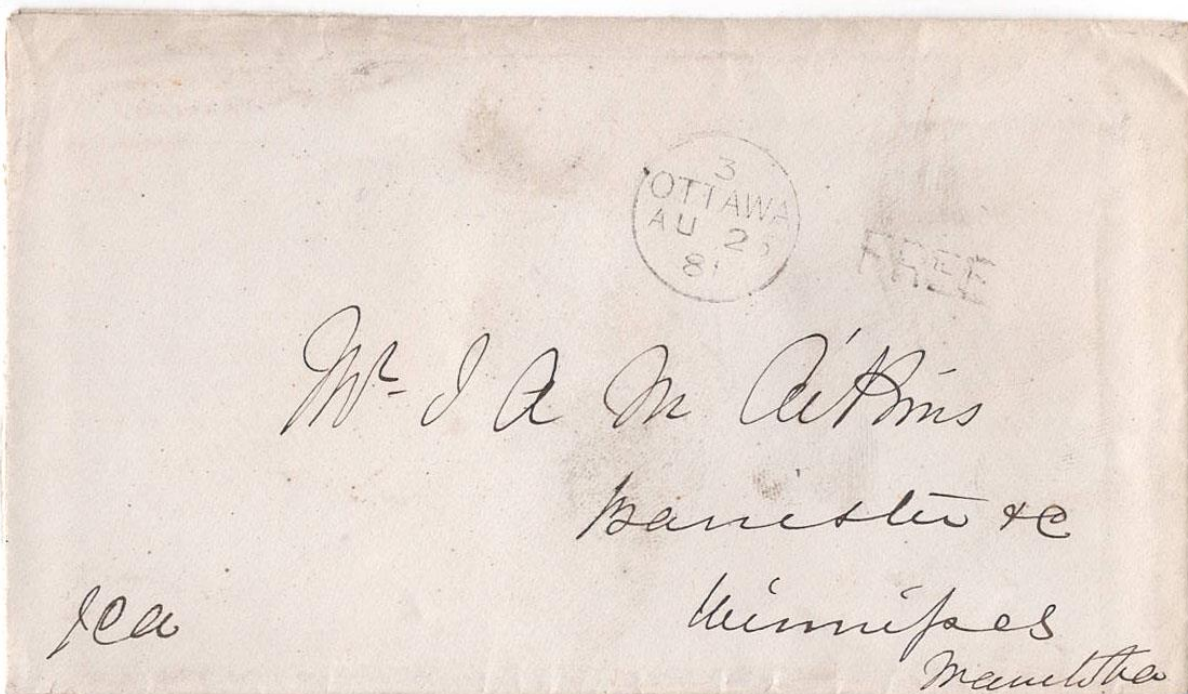 3
OTTAWA
AU 2
8
FREE
Mr- J A M Aikins
Barrister &c
Winnipeg
Manitoba
JCA